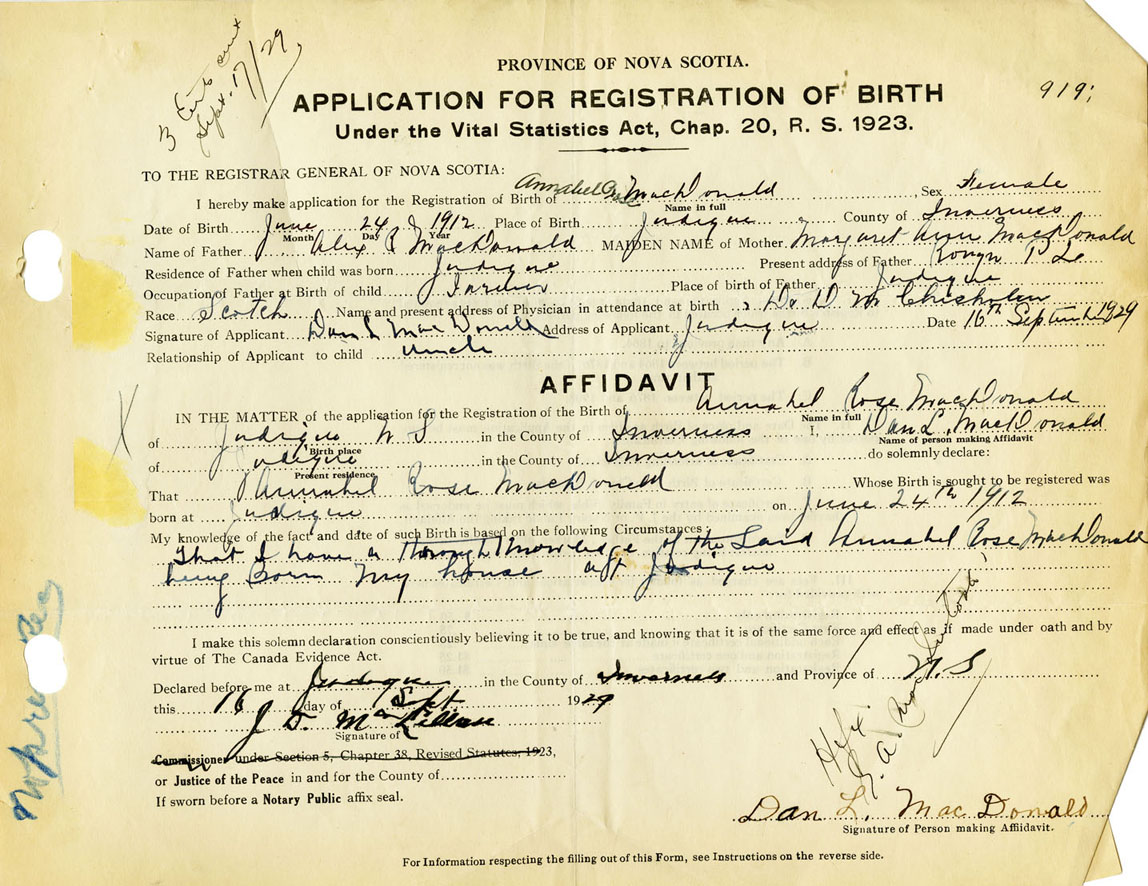 3 Certs sent
Sept. 17/29
919;
PROVINCE OF NOVA SCOTIA.
APPLICATION FOR REGISTRATION OF BIRTH
Under the Vital Statistics Act, Chap. 20, R. S. 1923.
TO THE REGISTRAR GENERAL OF NOVA SCOTIA:
I hereby make application for the Registration of Birth of Annabel MacDonald Sex Female
Name in full
Date of Birth June 24 1912 Place of Birth Judique County of Inverness
Month Day Year
Name of Father Alex MacDonald MAIDEN NAME of Mother Margaret Ann MacDonald
Residence of Father when child was born Judique Present address of Father
Occupation of Father at Birth of child Place of birth of Father Judique
Race Scotch Name and present address of Physician in attendance at birth Chisholm
Signature of Applicant Dan L MacDonald Address of Applicant Judique Date 16th September 1929
Relationship of Applicant to child Uncle
AFFIDAVIT
IN THE MATTER of the application for the Registration of the Birth of Annabel Rose MacDonald
Name in full
of Judique N S in the County of Inverness I, Dan L. MacDonald
Birth place Name of person making Affidavit
of Judique in the County of Inverness do solemnly declare:
Present residence
That Annabel Rose MacDonald Whose Birth is sought to be registered was
born at Judique on June 24th 1912
My knowledge of the fact and date of such Birth is based on the following Circumstances:
That I have a knowledge of the Said Annabel Rose MacDonald
being born my house at Judique
I make this solemn declaration conscientiously believing it to be true, and knowing that it is of the same force and effect as if made under oath and by
virtue of The Canada Evidence Act.
Declared before me at Judique in the County of Inverness and Province of N.S
this 16 day of Sept 1929
Signature of
Commissioner under Section 5, Chapter 38, Revised Statutes, 1923,
or Justice of the Peace in and for the County of
If sworn before a Notary Public affix seal.
Dan L. MacDonald
Signature of Person making Affiidavit.
For Information respecting the filling out of this Form, see Instructions on the reverse side.